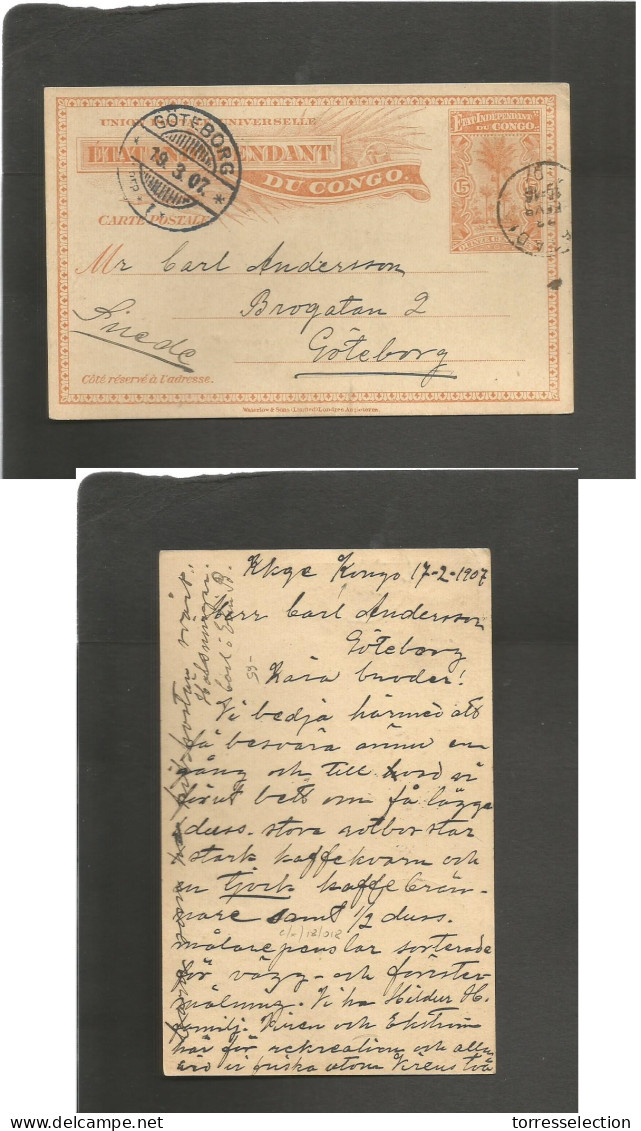 UNION POSTALE UNIVERSELLE
ÉTAT INDÉPENDANT
DU CONGO.
CARTE POSTALE
ÉTAT INDÉPENDANT
DU CONGO
15
15
QUINZE CENTIMES
GÖTEBORG
19. 3. 07.
Mr Carl Andersson
Brogatan 2
Göteborg
Suede
Côté réservé à l'adresse.
Waterlow & Sons Limited, Londres
Kkge Kongo 17-2-1907
Herr Carl Andersson
Göteborg
Kära broder!
Vi bedja härmed att
få besvära ännu en
gång och till hvad vi
förut bett om få lägga
duss. stora rotborstar
stark kaffekvarn och
en tjock kaffebrän-
nare samt 1/2 duss.
målarepenslar sorterade
för vägg- och fönster-
målning. Vi ha Hildur H.
familj. Viren och Ekström
här för rekreation och alla
äro vi friska utom Virens två
svårt.
Hälsningar
Carl o
55-
torresselection